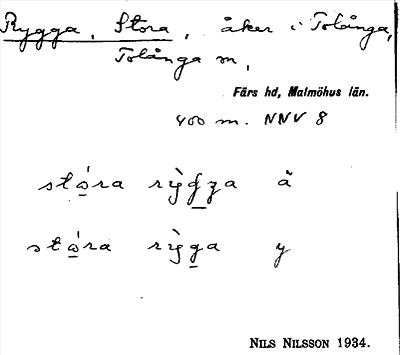 Rygga, Stora, åker i Tolånga,
Tolånga sn,
Färs hd, Malmöhus län.
400 m. NNV 8
stó̱ra rỳg̱ga ä
stó̱ra rỳg̱a y
NILS NILSSON 1934.